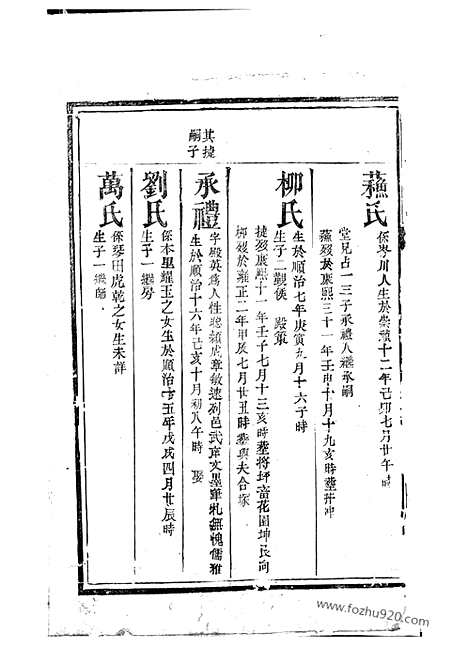 蘓氏
係岑川人生於崇禎十二年己卯七月廿午時
堂兄占一三子承禮入繼承嗣
蘓歿於康熙三十一年壬申十月十九亥時塟井冲
柳氏
生於順治七年庚寅九月十六子時
生子二觀侯 殿策
捷歿康熙十一年壬子七月十三亥時塟將坪畲花園坤艮向
柳歿於雍正二年甲辰七月廿五時塟與夫合塚
其捷
嗣子
承禮
字殿英為人性聰穎成章敏速列邑武庠文墨筆札無愧儒雅
生於順治十六年己亥十月初八午時 娶
劉氏
係本里耀玉之女生於順治十五年戊戌四月廿辰時
生子一繼勞
萬氏
係琴田虎乾之女生未詳
生子一繼師
www.fozhu920.com